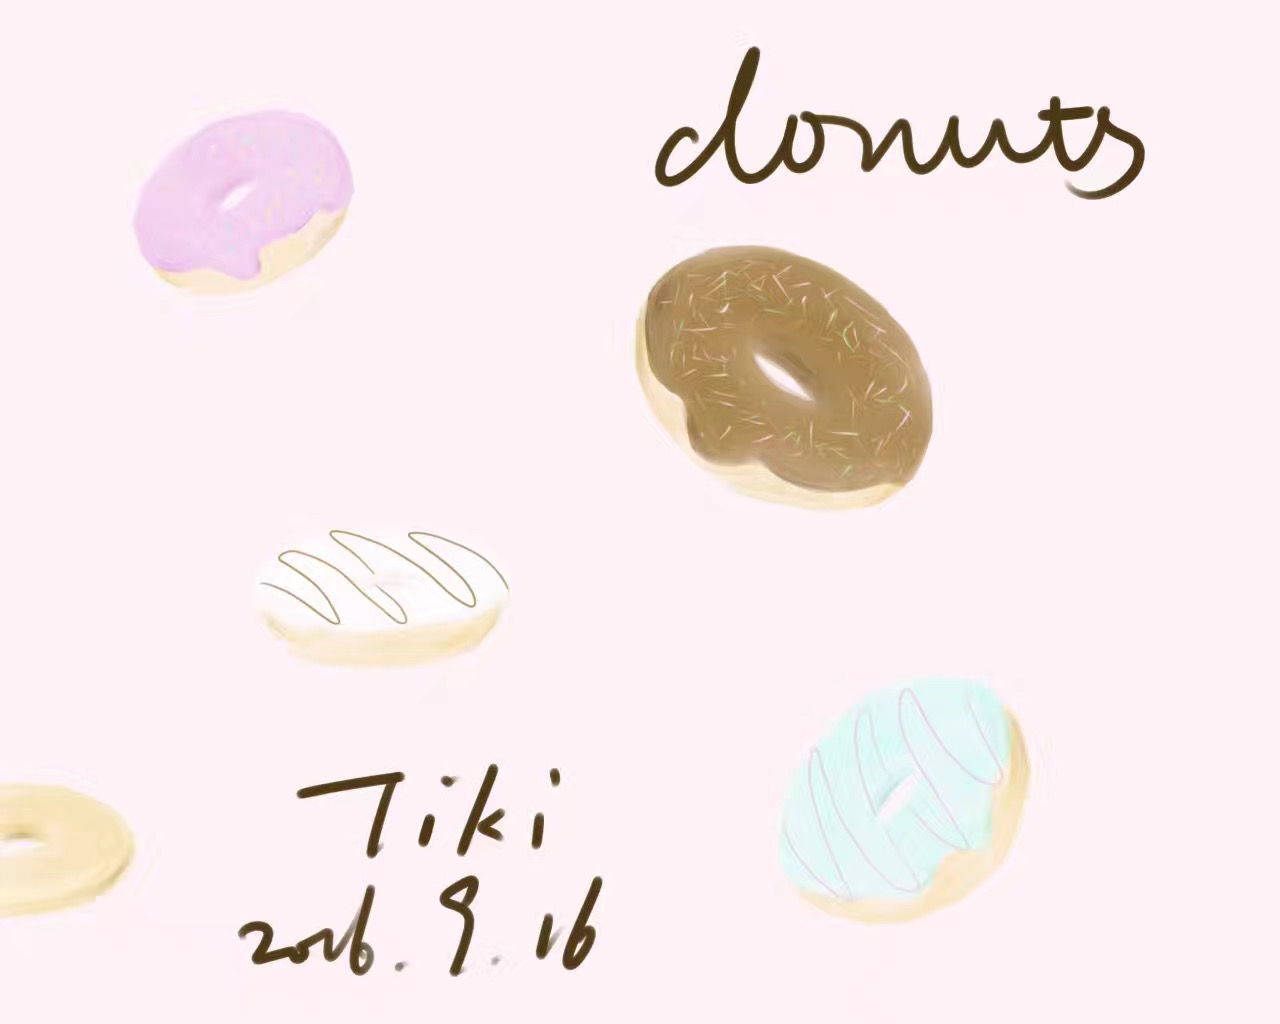 donuts
Tiki
2016.9.16